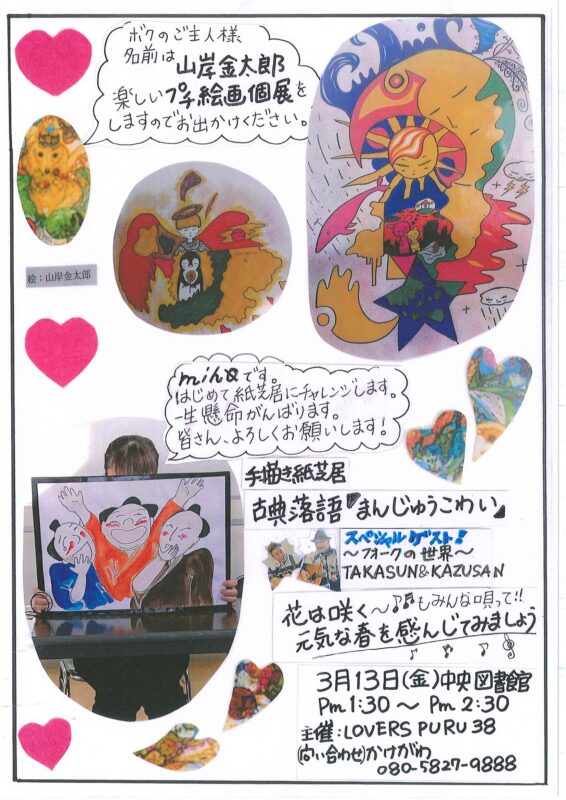 ボクのご主人様
名前は山岸金太郎
楽しいプチ絵画個展を
しますのでお出かけください。
絵：山岸金太郎
mihoです。
はじめて紙芝居にチャレンジします。
一生懸命がんばります。
皆さん、よろしくお願いします!
手描き紙芝居
古典落語『まんじゅうこわい』
スペシャルゲスト!
～フォークの世界～
TAKASUN&KAZUSAN
花は咲く～♪♬もみんな唄って!!
元気な春を感んじてみましょう
3月13日(金)中央図書館
Pm 1:30 ～ Pm 2:30
主催:LOVERS PURU 38
(問い合わせ)かけがわ
080-5827-9888